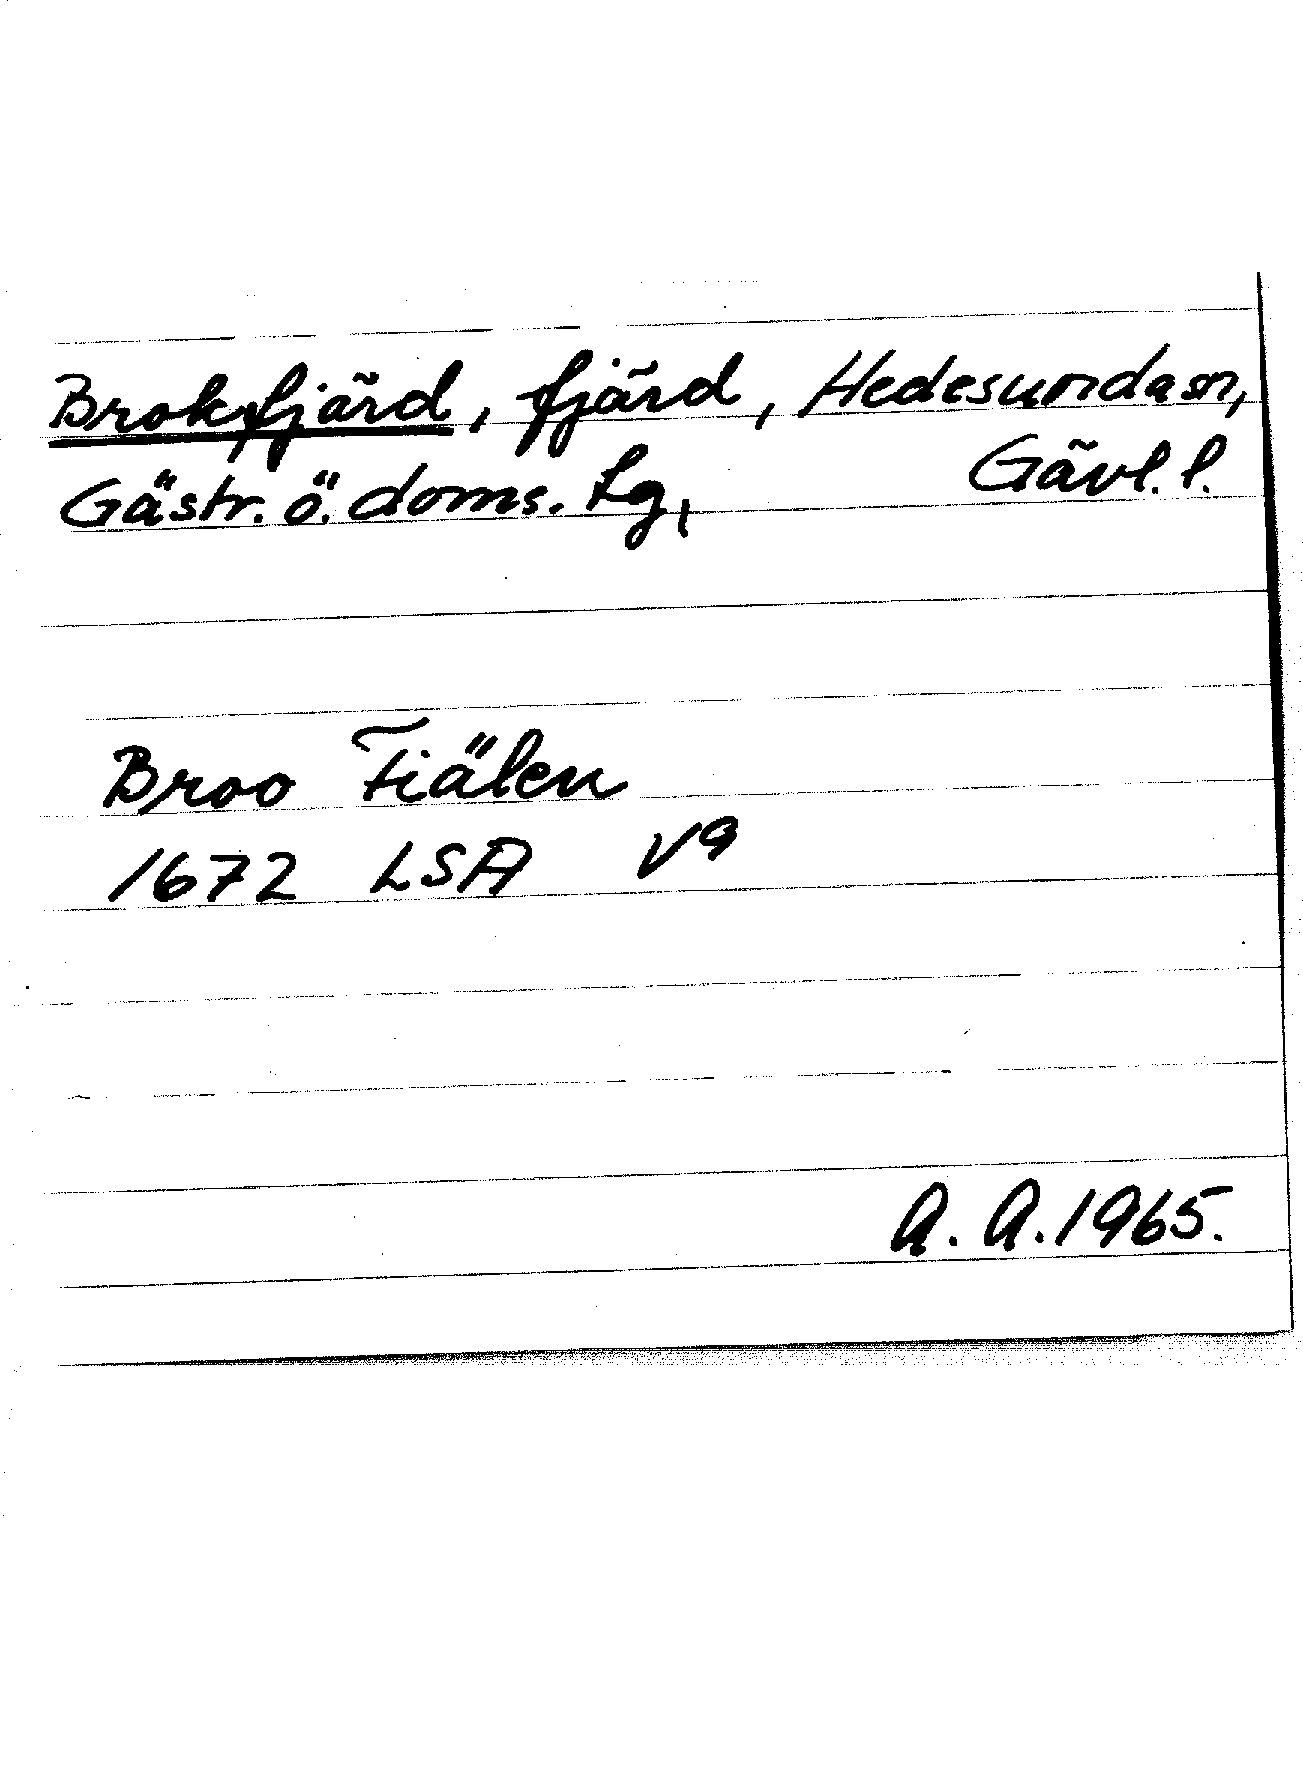 Brokfjärd, fjärd, Hedesunda sn,
Gästr. ö. doms. tg, Gävl. l.
Broo Fiälen
1672 LSA V9
A. A. 1965.